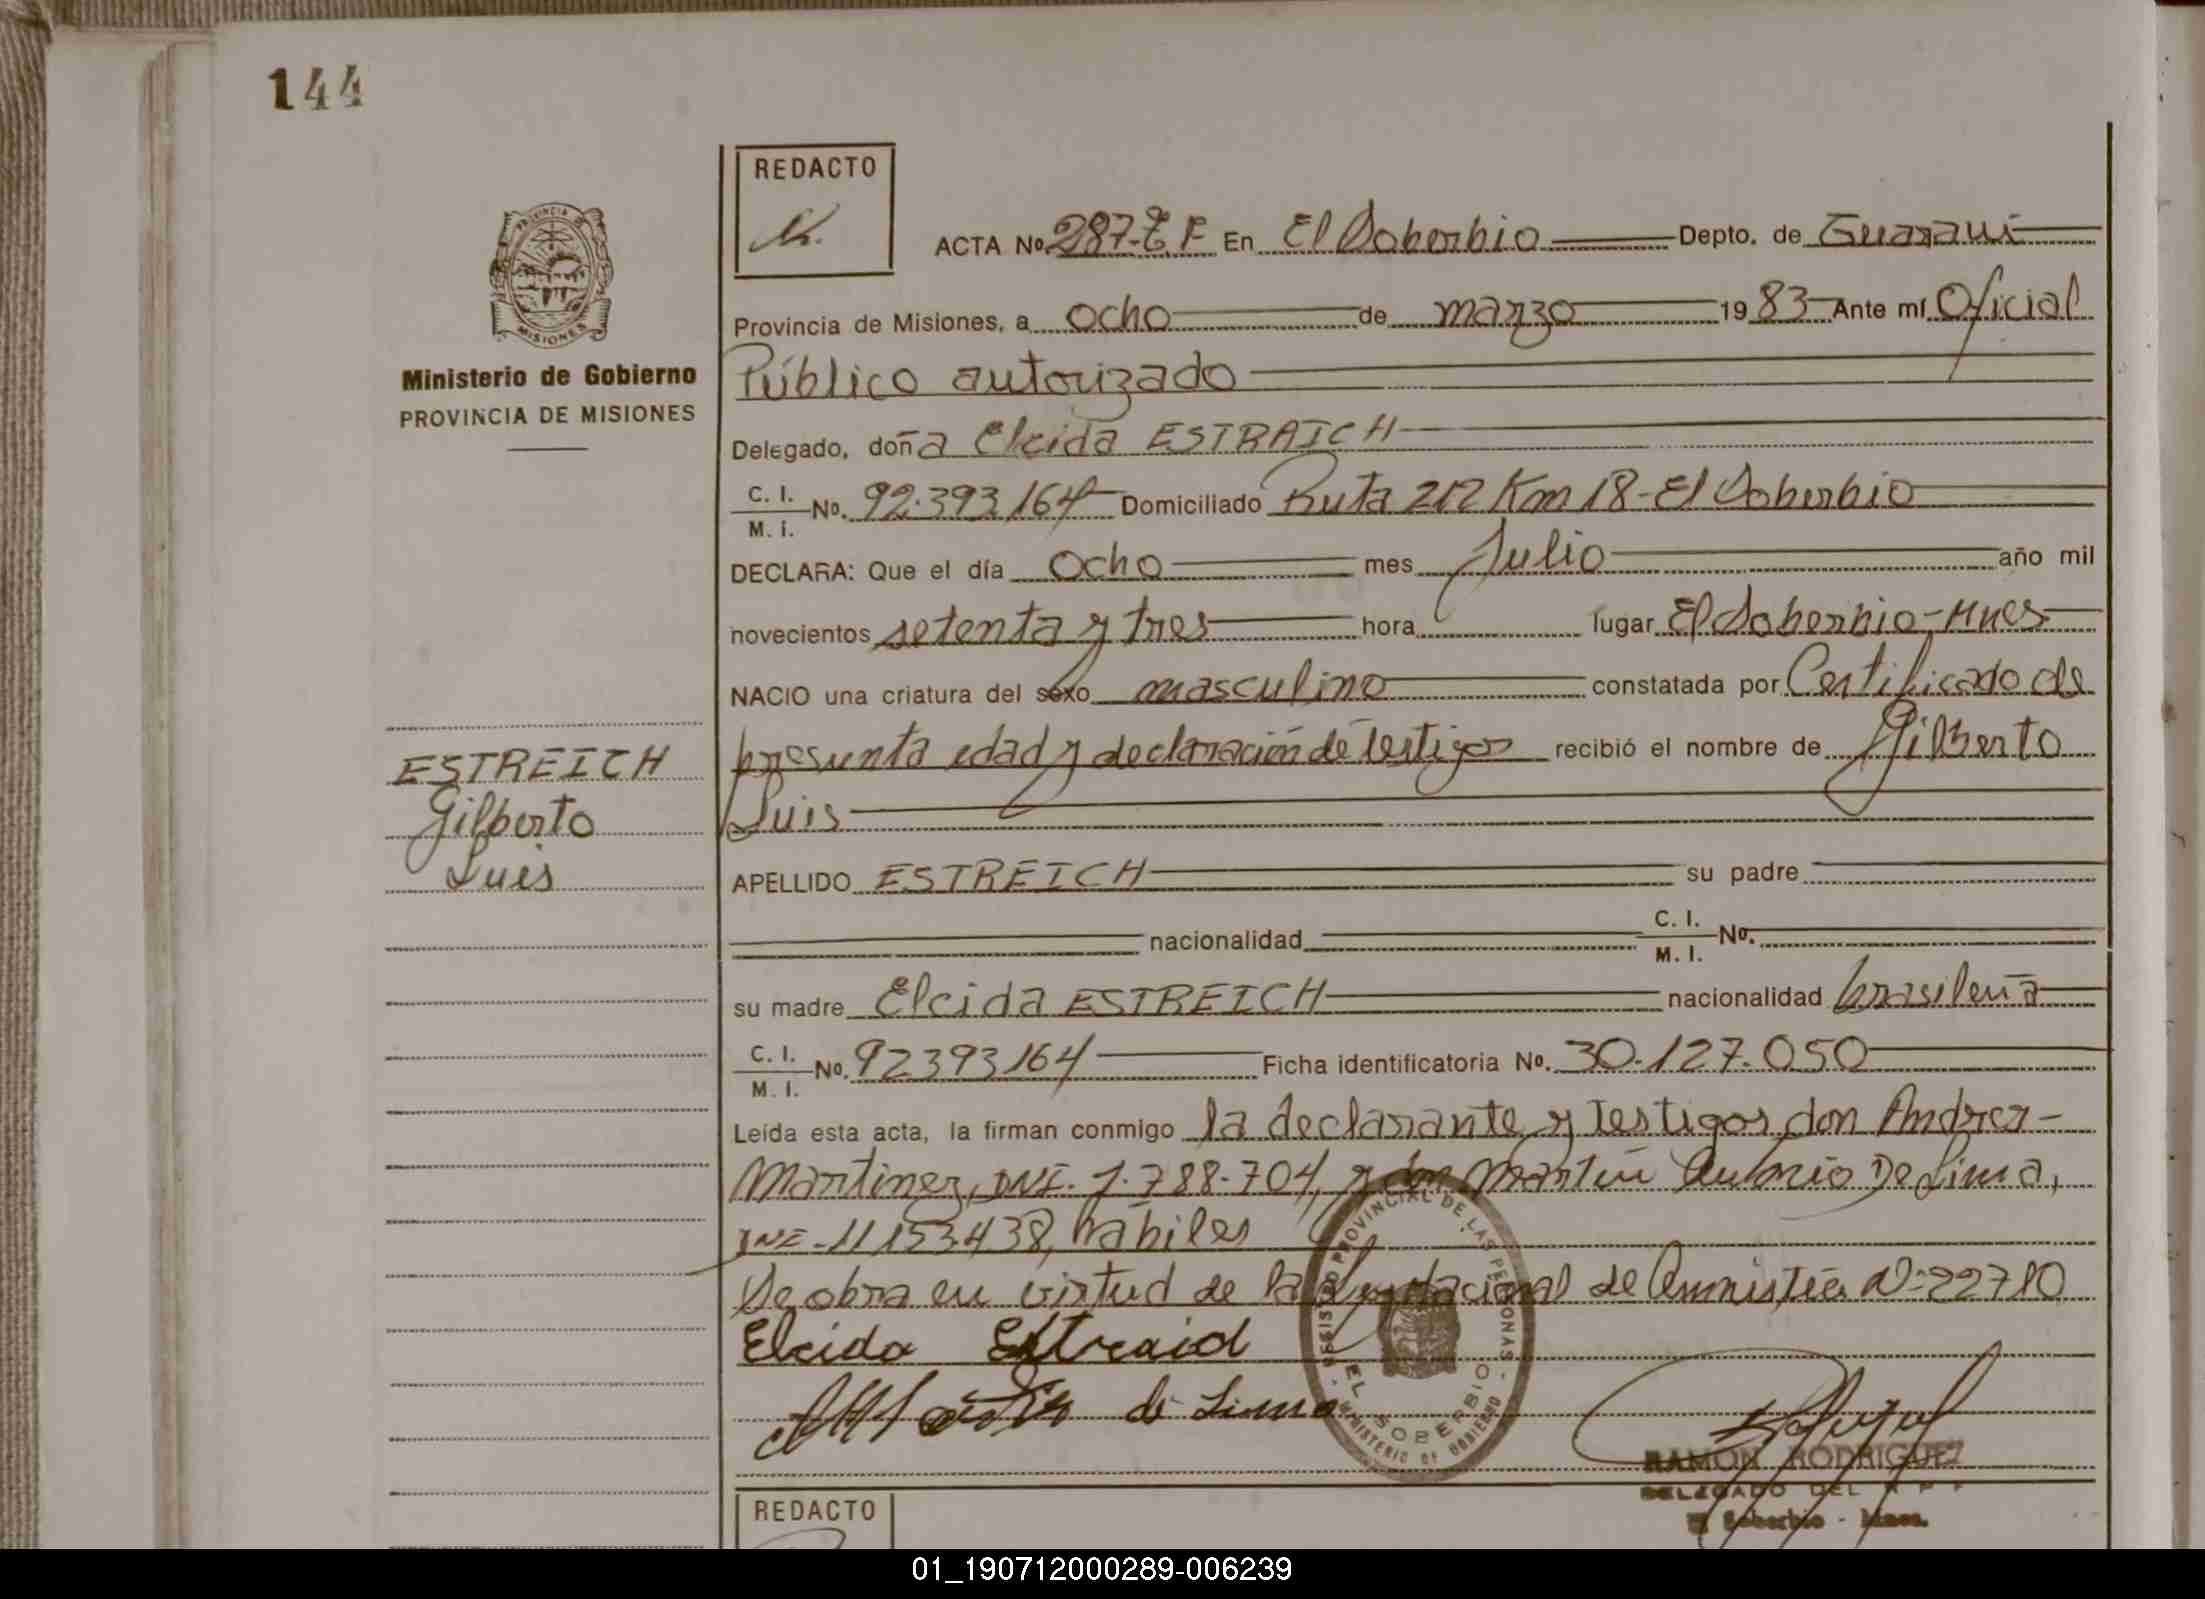 144
REDACTO
ACTA No. 287-T.F En El Soberbio Depto. de Guaraní
Provincia de Misiones, a ocho de marzo 1983 Ante mí Oficial
Público autorizado
Ministerio de Gobierno
PROVINCIA DE MISIONES
Delegado, doña Elcida ESTRAICH
C. I.
M. I. No. 92.393.164 Domiciliado Ruta 212 Km 18-El Soberbio
DECLARA: Que el día ocho mes Julio año mil
novecientos setenta y tres hora lugar El Soberbio-Mnes
NACIO una criatura del sexo masculino constatada por Certificado de
presunta edad y declaración de testigos recibió el nombre de Gilberto
Luis
ESTREICH
Gilberto
Luis
APELLIDO ESTREICH su padre
nacionalidad C. I.
M. I. No.
su madre Elcida ESTREICH nacionalidad brasileña
C. I.
M. I. No. 92393164 Ficha identificatoria No. 30.127.050
Leída esta acta, la firman conmigo la declarante y testigos don Andres
Martinez, DNI. 7.788.704, y don Martín Antonio De Lima,
DNI-11153438, hábiles
Se obra en virtud de la Ley Nacional de Amnistía Nº 22710
Elcida Estraid
de Lima
REGISTRO PROVINCIAL DE LAS PERSONAS
EL SOBERBIO
MINISTERIO DE GOBIERNO
RAMON RODRIGUEZ
DELEGADO DEL R P P
El Soberbio - Mnes.
REDACTO
01_190712000289-006239